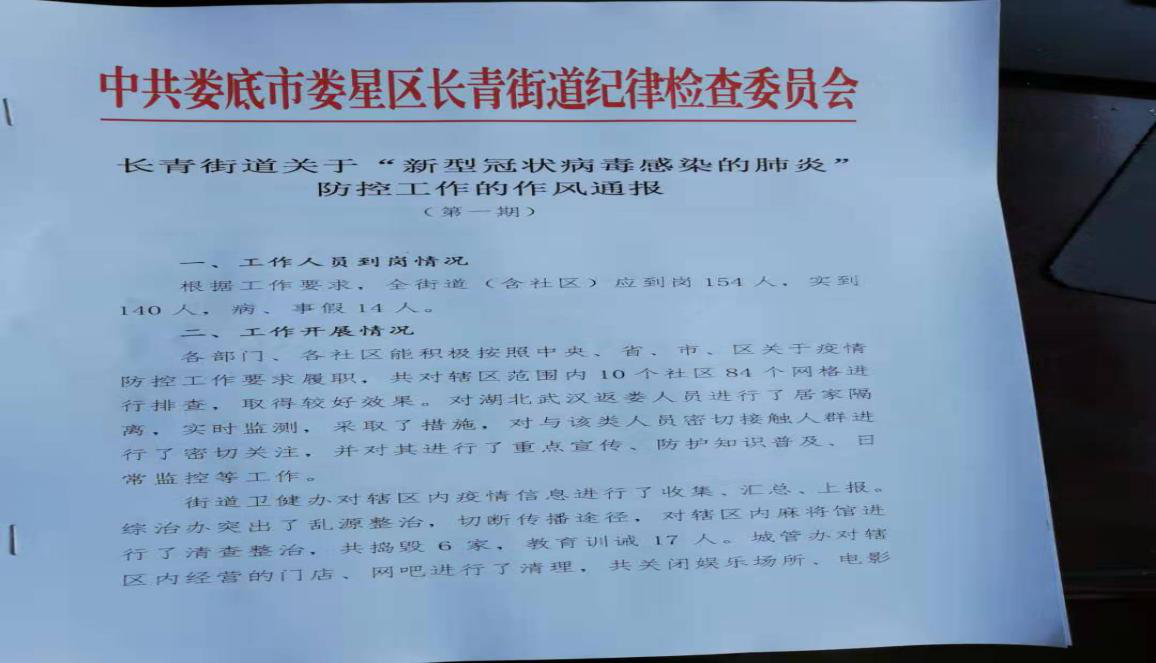 中共娄底市娄星区长青街道纪律检查委员会
长青街道关于“新型冠状病毒感染的肺炎”
防控工作的作风通报
（第一期）
一、工作人员到岗情况
根据工作要求，全街道（含社区）应到岗 154 人，实到
140 人，病、事假 14 人。
二、工作开展情况
各部门、各社区能积极按照中央、省、市、区关于疫情
防控工作要求履职，共对辖区范围内 10 个社区 84 个网格进
行排查，取得较好效果。对湖北武汉返娄人员进行了居家隔
离，实时监测，采取了措施，对与该类人员密切接触人群进
行了密切关注，并对其进行了重点宣传、防护知识普及、日
常监控等工作。
街道卫健办对辖区内疫情信息进行了收集、汇总、上报。
综治办突出了乱源整治，切断传播途径，对辖区内麻将馆进
行了清查整治，共捣毁 6 家，教育训诫 17 人。城管办对辖
区内经营的门店、网吧进行了清理，共关闭娱乐场所、电影